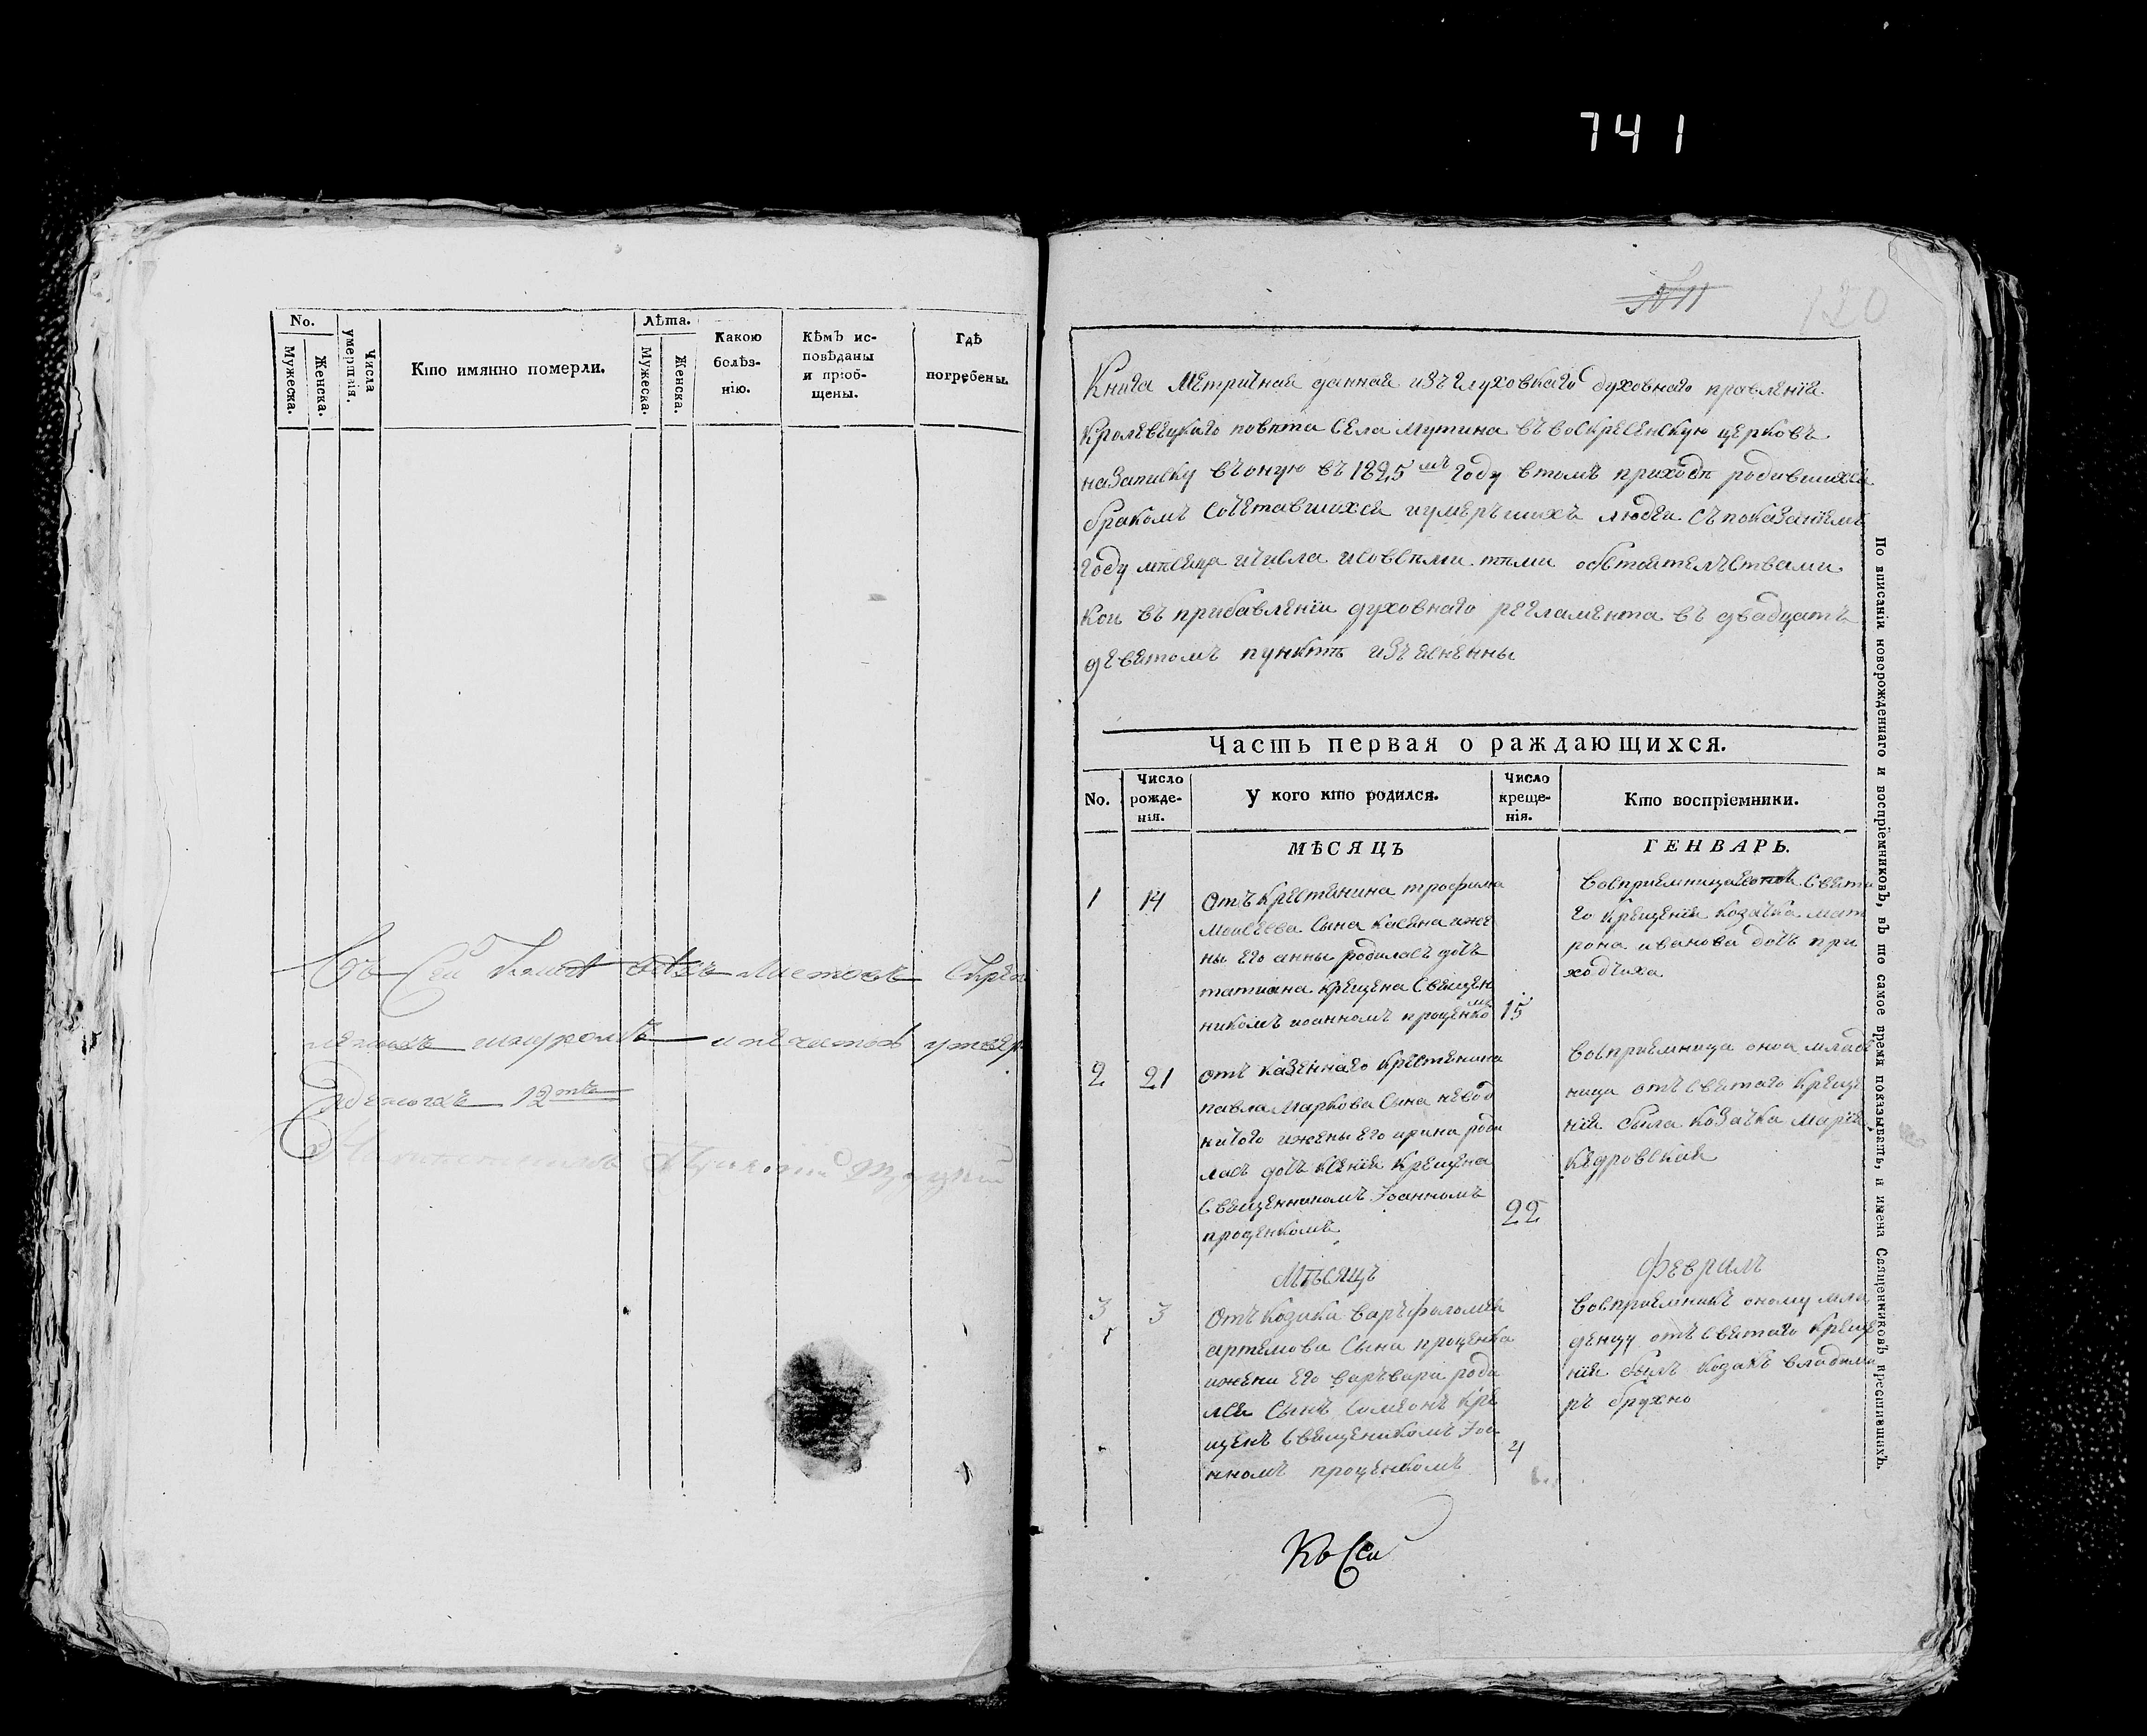 741
No.
Мужеска.
Женска.
Числа умершія.
Кто имянно померли.
Лѣта.
Мужеска.
Женска.
Какою болѣз-
нію.
Кѣмъ ис-
повѣданы
и пріоб-
щены.
Гдѣ
погребены.
Въ сей листовъ
шнуромъ и печатью утвер
12
№ 11
120
Книга метричная данная изъ глуховскаго духовнаго правленія
Кролевецкаго повѣта села мутина въ воскресенскую церковъ
на записку въ оную въ 1825мъ году втомъ приходѣ родившихся
бракомъ сочетавшихся иумершихъ людеи съ показаніемъ
году мѣсяца ичисла исовсѣми тѣми обстоятелъствами
кои въ прибавленіи духовнаго регламента въ двадцатъ
девятомъ пунктѣ изъяснены
Часть первая о раждающихся.
No.
Число
рожде-
нія.
У кого кто родился.
Число
креще-
нія.
Кто воспріемники.
МѢСЯЦЪ
ГЕНВАРЬ.
1 14
Отъ крестянина трофима
моисеева сына касяна иже
ны его анны родиласъ дочъ
татиана крещена священ
никомъ иоанномъ проценкомъ 15
восприемница святa
го крещенія козачка мат
рона иванова дочъ при
ходчиха
2 21
отъ казеннаго крестянина
павла маркова сына невод
ничого ижены его ирина роди
ласъ дочъ ксенія крещена
священникомъ Іоанномъ 22
проценкомъ
восприемница оноа младе
ница отъ святаго креще
нія была козачка марія
кедровская
мѣсяцъ
февралъ
3 3
Отъ козака варъфоломея
артемова сына проценка
ижени его варъвари роди
лся сынъ симеонъ кре
щенъ священикомъ Іоа
нномъ проценкомъ 4
восприемникъ оному мла
денцу отъ святаго креще
нія былъ козакъ владими
ръ брухно
Къ сей
По вписаніи новорожденнаго и воспріемниковъ, въ то самое время показывать, и имена Священниковъ крестившихъ.